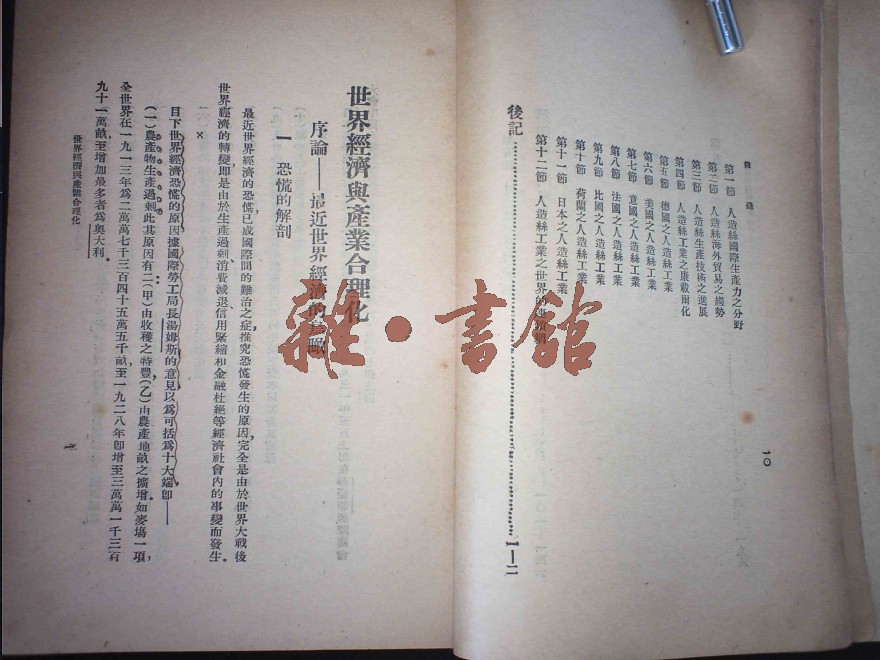 目 錄
一〇
第一節 人造絲國際生產力之分野
第二節 人造絲海外貿易之趨勢
第三節 人造絲生產技術之進展
第四節 人造絲工業之康載爾化
第五節 德國之人造絲工業
第六節 美國之人造絲工業
第七節 意國之人造絲工業
第八節 法國之人造絲工業
第九節 比國之人造絲工業
第十節 荷蘭之人造絲工業
第十一節 日本之人造絲工業
第十二節 人造絲工業之世界的
後記……一—二
世界經濟與產業合理化
序論——最近世界經濟的
一 恐慌的解剖
最近世界經濟的恐慌,已成國際間的難治之症,推究恐慌發生的原因,完全是由於世界大戰後
世界經濟的轉變,即是由於生產過剩消費減退信用緊縮和金融杜絕等經濟社會內的事變而發生。
目下世界經濟恐慌的原因,據國際勞工局長湯姆斯的意見,以為可括為十大端,即——
(一)農產物生產過剩,此其原因有二(甲)由收穫之特豐,(乙)由農產地畝之擴增,如麥場一項,
全世界在一九一三年為二萬萬七千三百四十五萬五千畝,至一九二八年即增至三萬萬一千三百
九十一萬畝,至增加最多者為奧大利。
世界經濟與產業合理化
一
雜·書館